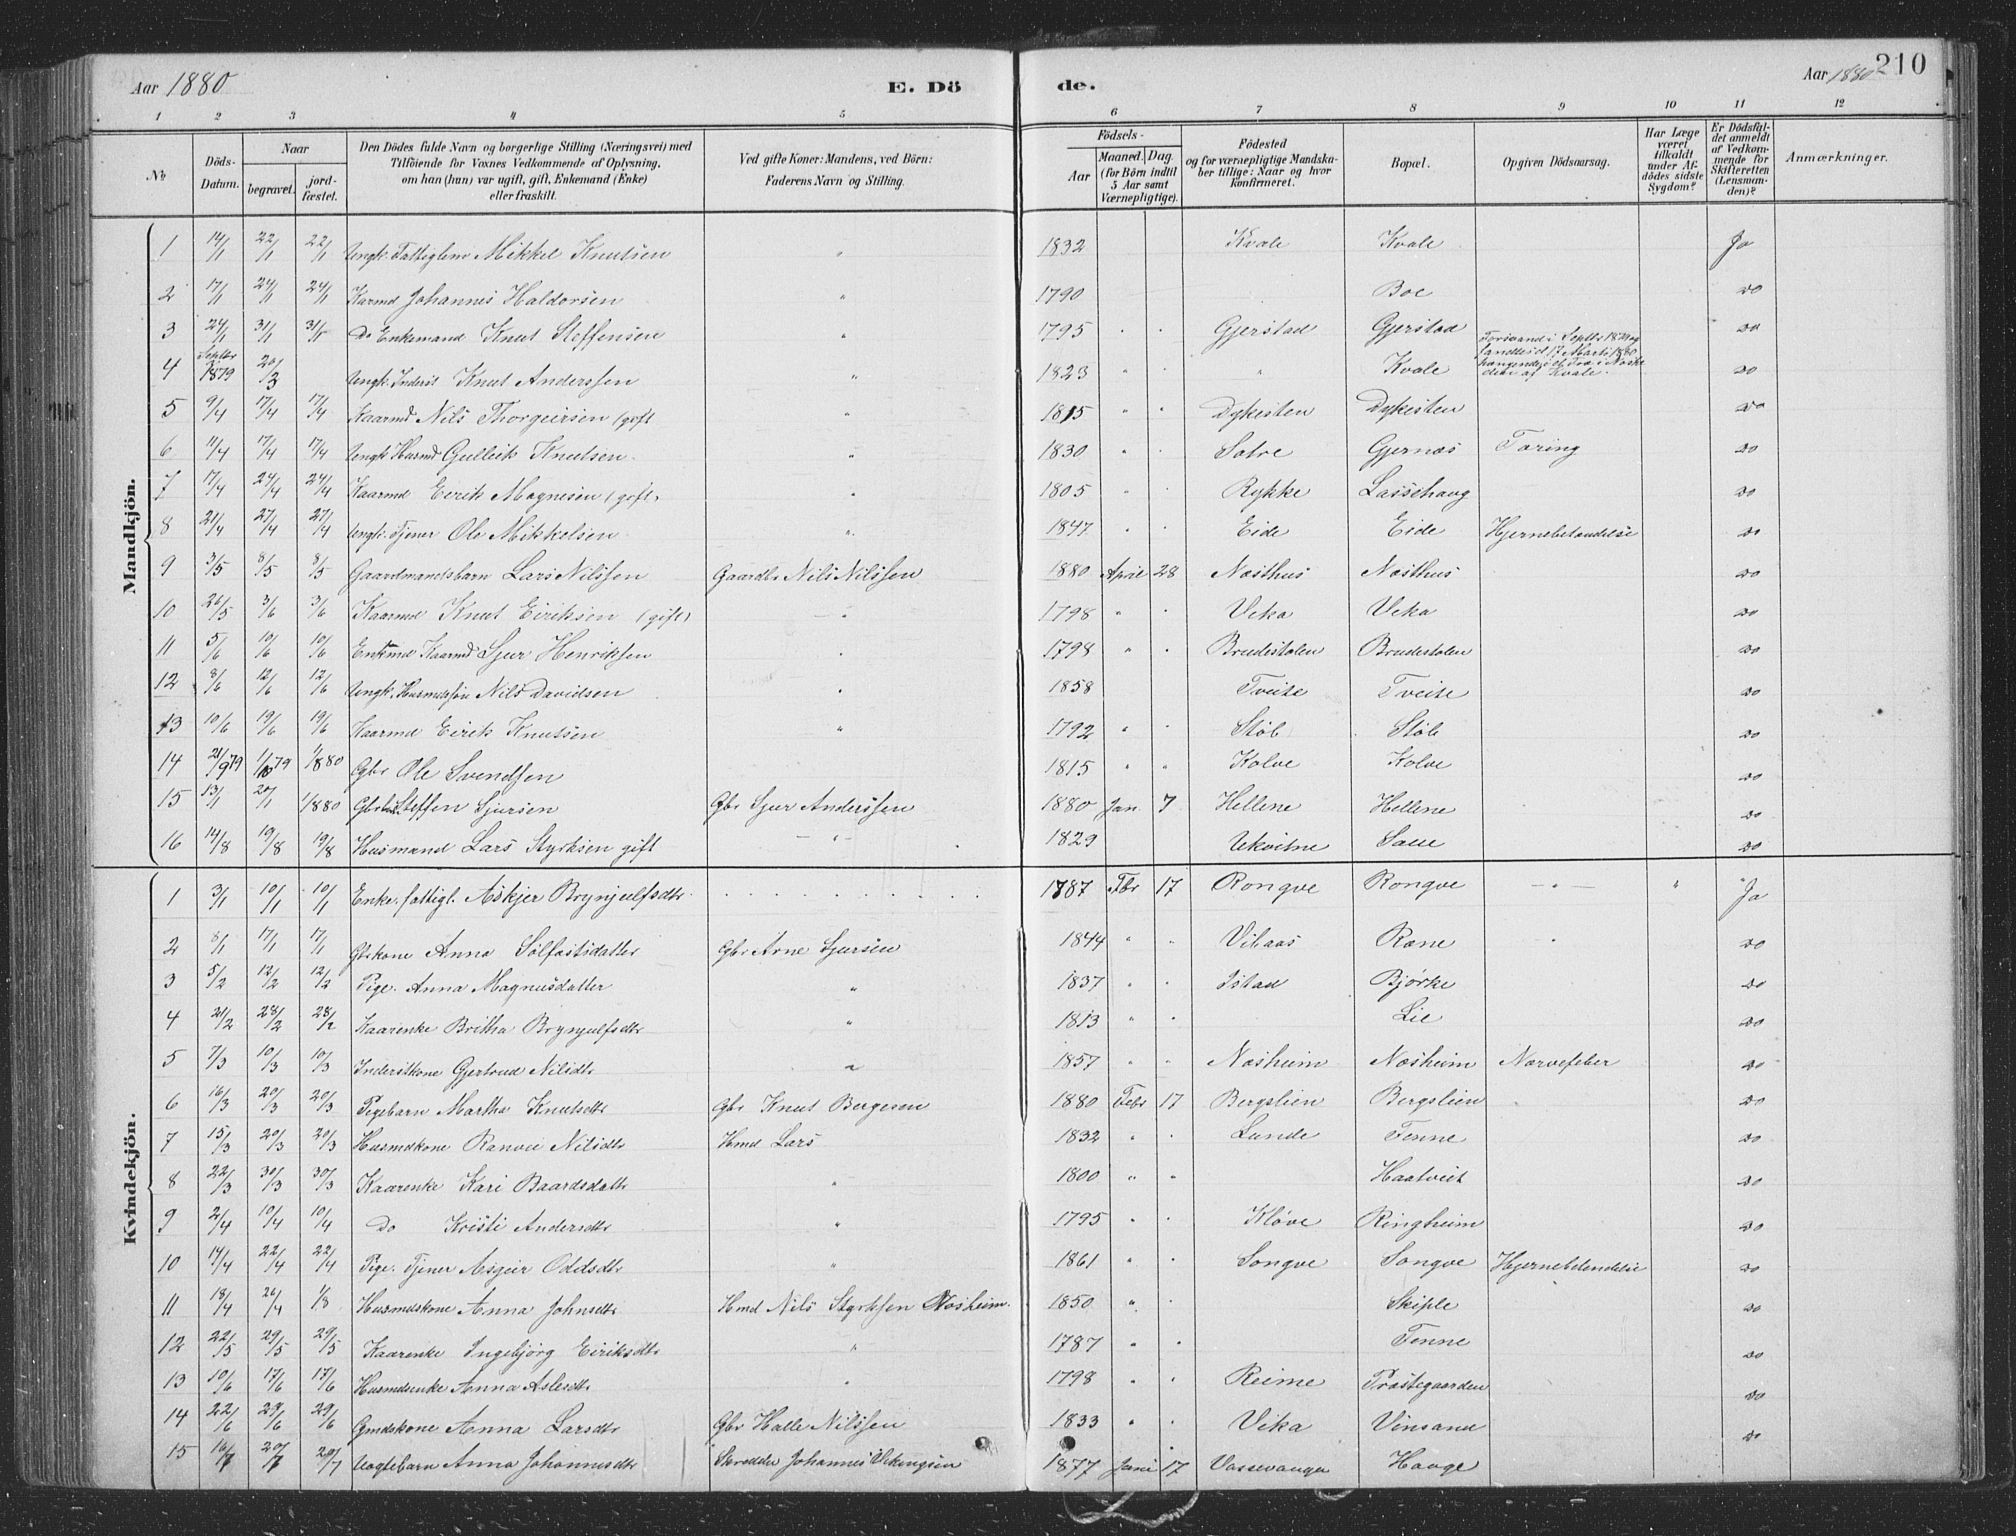 Aar 1880 E. Dö de. Aar 1880 210
1 2 3 4 5 6 7 8 9 10 11 12
No
Döds-Datum.
Naar
begravet. jordfæstet.
Den Dödes fulde Navn og borgerlige Stilling (Næringsvei) med
Tilföiende for Voxnes Vedkommende af Oplysning,
om han (hun) var ugift, gift, Enkemand (Enke)
eller fraskilt.
Ved gifte Koner: Mandens, ved Börn:
Faderens Navn og Stilling.
Födsels-
Aar Maaned. Dag.
(for Börn indtil
5 Aar samt
Værnepligtige).
Födested
og for værnepligtige Mandska-
ber tillige: Naar og hvor
konfirmeret.
Bopæl.
Opgiven Dödsaarsag.
Har Læge
været
tilkaldt
under Af-
dödes sidste
Sygdom?
Er Dödsfal-
det anmeldt
af Vedkom-
mende for
Skifteretten
(Lensman-
den)?
Anmærkninger.
Mandkjön.
1 14/1 22/1 22/1 Ungk. Fattiglem Mikkel Knutsen " 1832 Kvale Kvale Ja
2 17/1 24/1 24/1 Kaarmd Johannes Haldorsen " 1790 Boe do
3 24/1 31/1 31/1 Do Enkemand Knut Steffensen " 1795 " " Gjerstad Gjerstad do
4 Septbr 1879 20/3 Ungk. Inderst Knut Anderssen " 1823 " " Kvale Forsvand i Septbr 1879 og fandtes d 17 Marts 1880 hangende i et Træ i af Kvale. do
5 9/4 17/4 17/4 Kaarmd Nils Thorgeirsen (gift " 1815 " " Dykesten Dykesten do
6 11/4 17/4 17/4 Ungk. Husmd Gulleik Knutsen " 1830 " " Satre Gjernæs Tæring do
7 17/4 24/4 24/4 Kaarmd Eirik Magnesen (gift) " 1805 " " Rykke Lassehaug do
8 21/4 27/4 27/4 Ungk. Tjener Ole Mikkelsen " 1847 " " Eide Eide Hjernebetændelse do
9 3/5 8/5 8/5 Gaardmandsbarn Lars Nilssen Gaardbr Nils Nilssen 1880 April 28 Næsthus Næsthus do
10 26/5 3/6 3/6 Kaarmd Knut Eiriksen (gift) " 1798 " " Veka Veka do
11 5/6 10/6 10/6 Enkemd Kaarmd Sjur Henriksen " 1798 " " Brudestolen Brudestolen do
12 8/6 12/6 12/6 Ungk. Husmdssøn Nils Davidsen " 1858 Tveite Tveite do
13 10/6 19/6 19/6 Kaarmd Eirik Knutsen " 1792 " " Støb Støb do
14 21/9 79 1/10 79 1/8 80 Gbr Ole Svendsen 1815 " " Kolve Kolve do
15 13/1 20/1 1/8 80 Gbrbarn Steffen Sjursen Gbr Sjur Anderssen 1880 Jan 7 Hellene Hellene do
16 14/8 19/8 19/8 Husmand Lars Styrksen gift — " — 1829 Ukvitne Saue do
Kvindekjön.
1 3/1 10/1 10/1 Enke. fattigl. Askjer Brynjulfsdtr 1787 Fbr 17 Rongve Rongve — " — " Ja
2 8/1 17/1 17/1 Gbrkone Anna Sølfæstsdatter Gbr Arne Sjursen 1844 " " Vibaas Røne " do
3 5/2 12/2 12/2 Pige. Anna Magnusdatter " 1837 " " Istad Bjørke do
4 21/2 28/2 28/2 Kaarenke Britha Brynjulfsdtr " 1813 " " Lie do
5 7/3 10/3 10/3 Inderstkone Gjertrud Nilsdtr " 1857 " " Næsheim Næsheim Nervefeber do
6 16/3 20/3 20/3 Pigebarn Martha Knutsdtr Gbr Knut Bergesen 1880 Febr 17 Bergslien Bergslien do
7 15/3 20/3 20/3 Husmdkone Ranvei Nilsdtr Hmd Lars 1832 " Lunde Tenne do
8 22/3 30/3 30/3 Kaarenke Kari Baardsdatr " 1800 " " Haatveit do
9 2/4 10/4 10/4 Do Kristi Andersdtr " 1795 " " Kløve Ringheim do
10 14/4 22/4 22/4 Pige. Tjener Asgjer Oddsdtr " 1861 " Songve Songve Hjernebetændelse do
11 18/4 26/4 1/8 Husmdskone Anna Johnsdtr Hmd Nils Styrksen Næsheim. 1850 " Skiple do
12 22/5 29/5 29/5 Kaarenke Ingebjørg Eiriksdtr " 1787 " " Tenne do
13 10/6 17/6 17/6 Husmdsenke Anna Aslesdtr " 1798 " " Reime Præstegaarden do
14 22/6 29/6 29/6 Gmdskone Anna Larsdtr Gbr Halle Nilssen 1833 " " Vika Vinsand do
15 16/7 20/7 20/7 Uægtebarn Anna Johannesdtr Skrædder Johannes Vikingsen 1877 Juni 17 Vossevangen Hauge